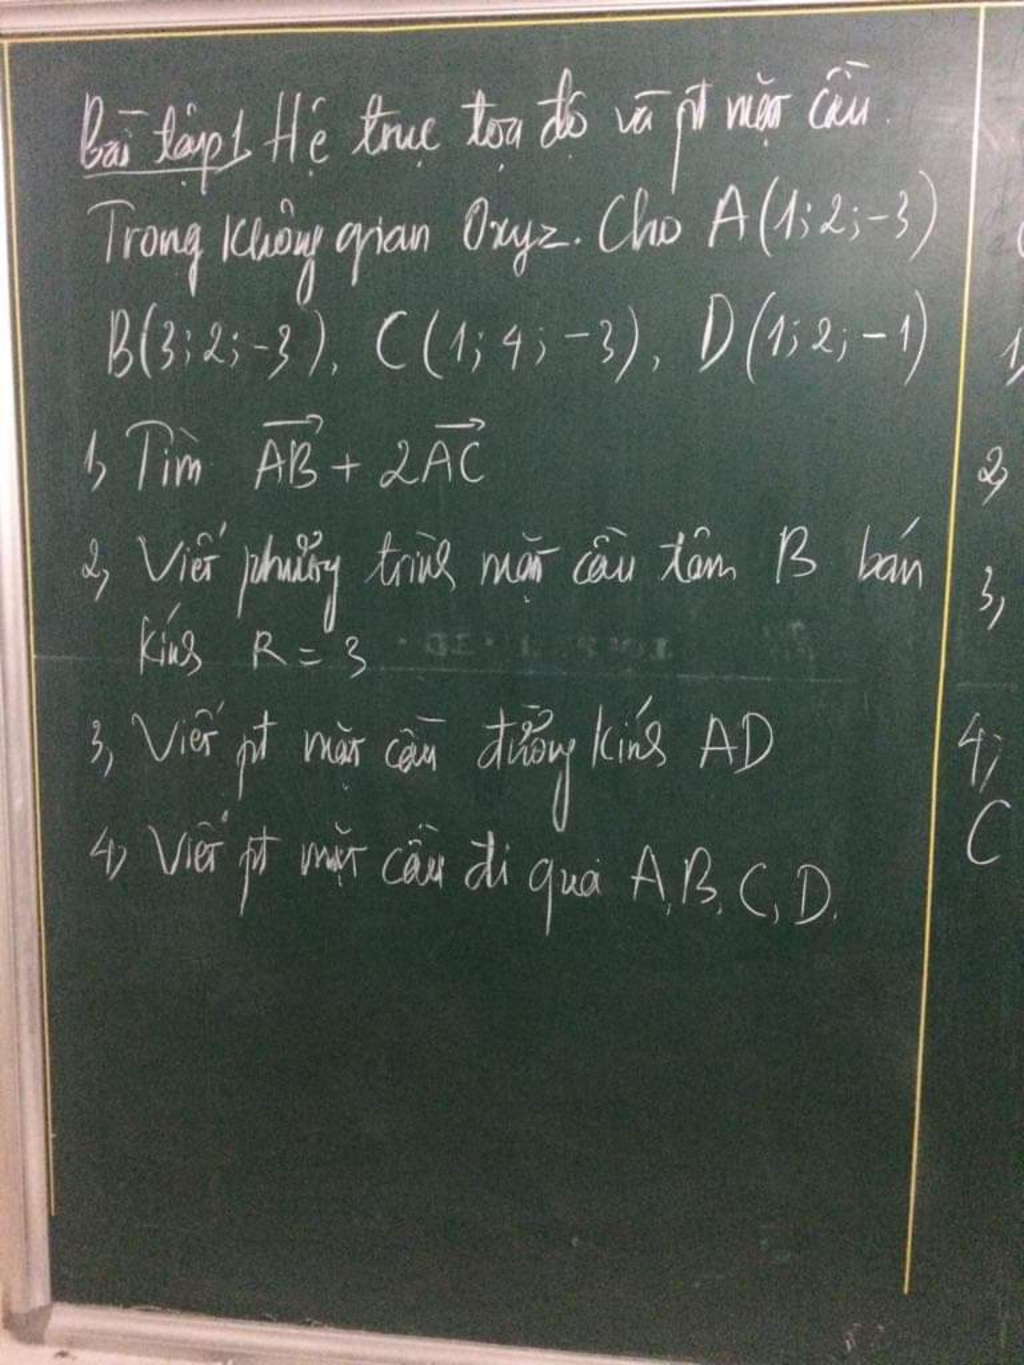 Bài tập 1 Hệ trục tọa độ và pt mặt cầu.
Trong không gian Oxyz. Cho A(1;2;-3)
B(3;2;-3), C(1;4;-3), D(1;2;-1)
1, Tìm $\overrightarrow{AB} + 2\overrightarrow{AC}$
2, Viết phương trình mặt cầu tâm B bán
kính R = 3
3, Viết pt mặt cầu đường kính AD
4, Viết pt mặt cầu đi qua A, B, C, D.
1,
2,
3,
4,
C